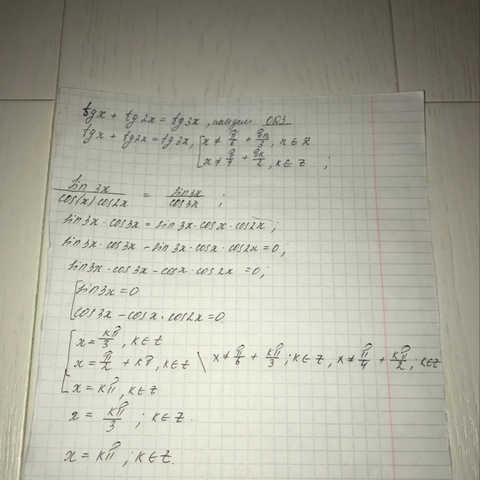 tgx + tg2x = tg3x, найдем ОДЗ
tgx + tg2x = tg3x, [x ≠ π/6 + πn/3, n ∈ Z
x ≠ π/4 + πk/2, k ∈ Z ;
sin 3x / cos(x) cos2x = sin3x / cos3x ;
sin3x · cos3x = sin3x · cosx · cos2x ;
sin3x · cos3x - sin3x · cosx · cos2x = 0 ;
sin3x · cos3x - cosx · cos2x = 0 ;
[sin3x = 0
cos3x - cosx · cos2x = 0
[x = kπ/3, k ∈ Z
x = π/2 + kπ, k ∈ Z \ x ≠ π/6 + kπ/3 ; k ∈ Z, x ≠ π/4 + kπ/2, k ∈ Z
x = kπ, k ∈ Z
x = kπ/3 ; k ∈ Z.
x = kπ ; k ∈ Z.